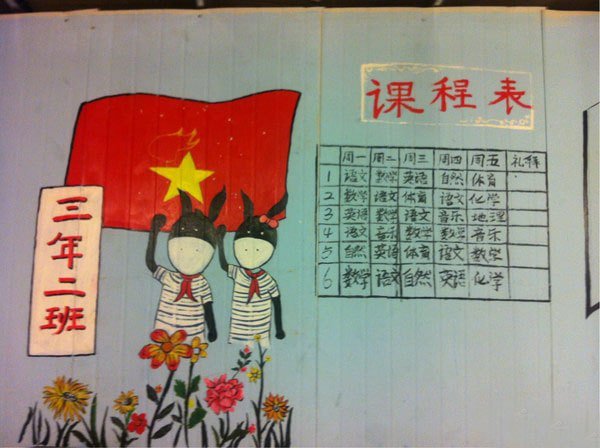 课程表
周一 周二 周三 周四 周五 礼拜
1 语文 数学 英语 自然 体育
2 数学 语文 体育 语文 化学
3 英语 数学 语文 音乐 地理
4 语文 音乐 数学 数学 音乐
5 自然 英语 体育 语文 数学
6 数学 语文 自然 英语 化学
三年二班